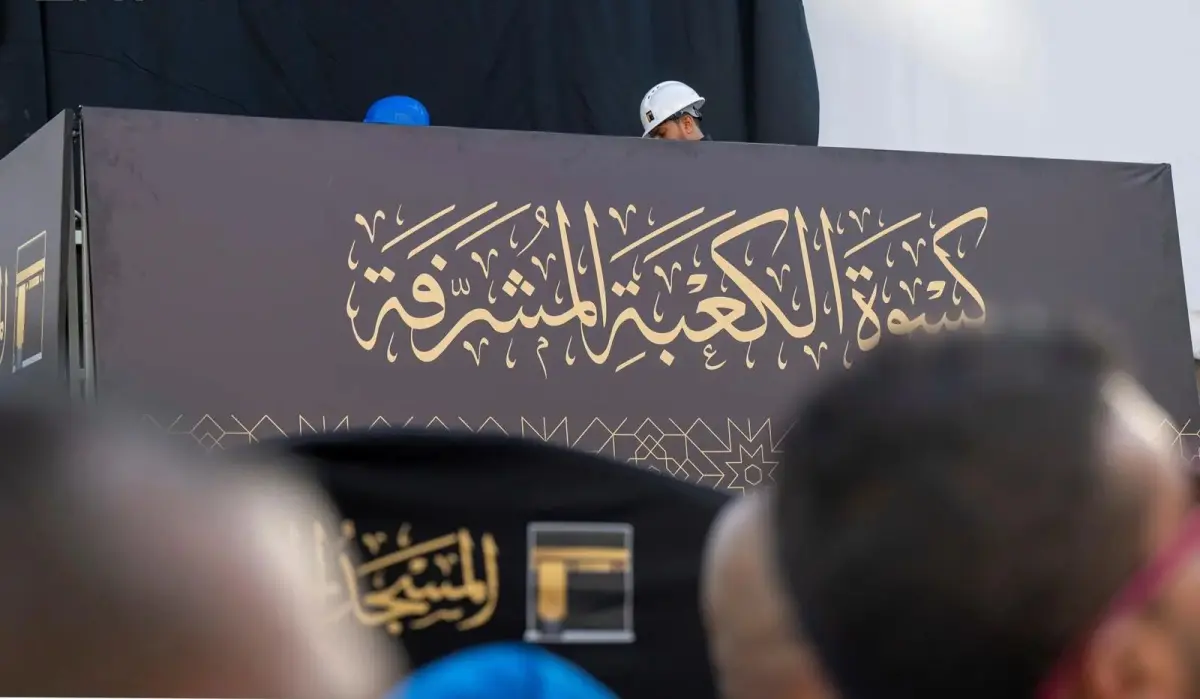 كسوة الكعبة المشرّفة
المسجد